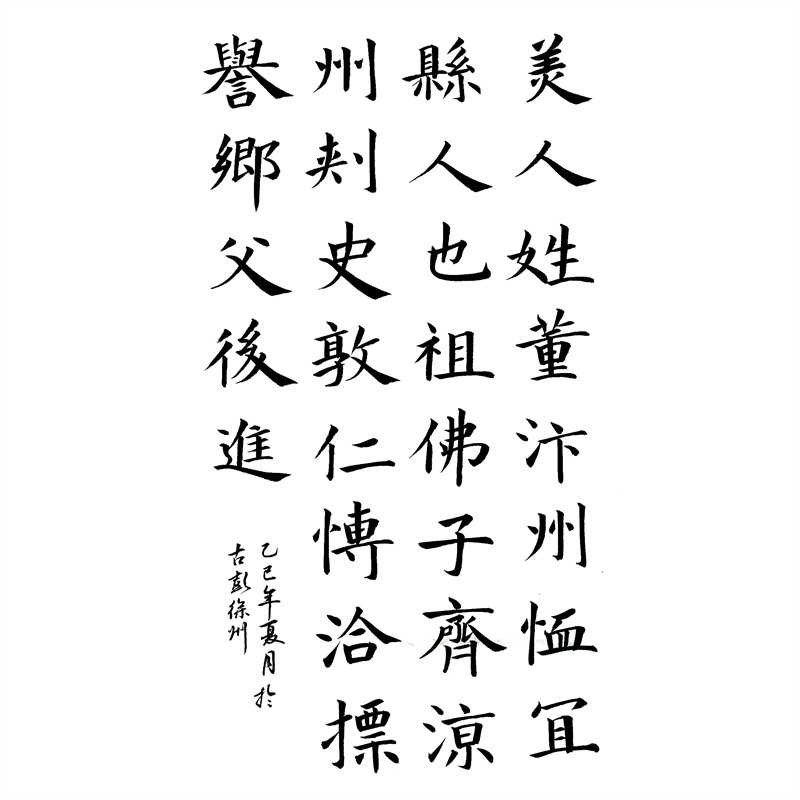 美人姓董汴州恤冝
縣人也祖佛子齊涼
州刾史敦仁愽洽標
譽鄉父後進
乙巳年夏月於
古彭徐州